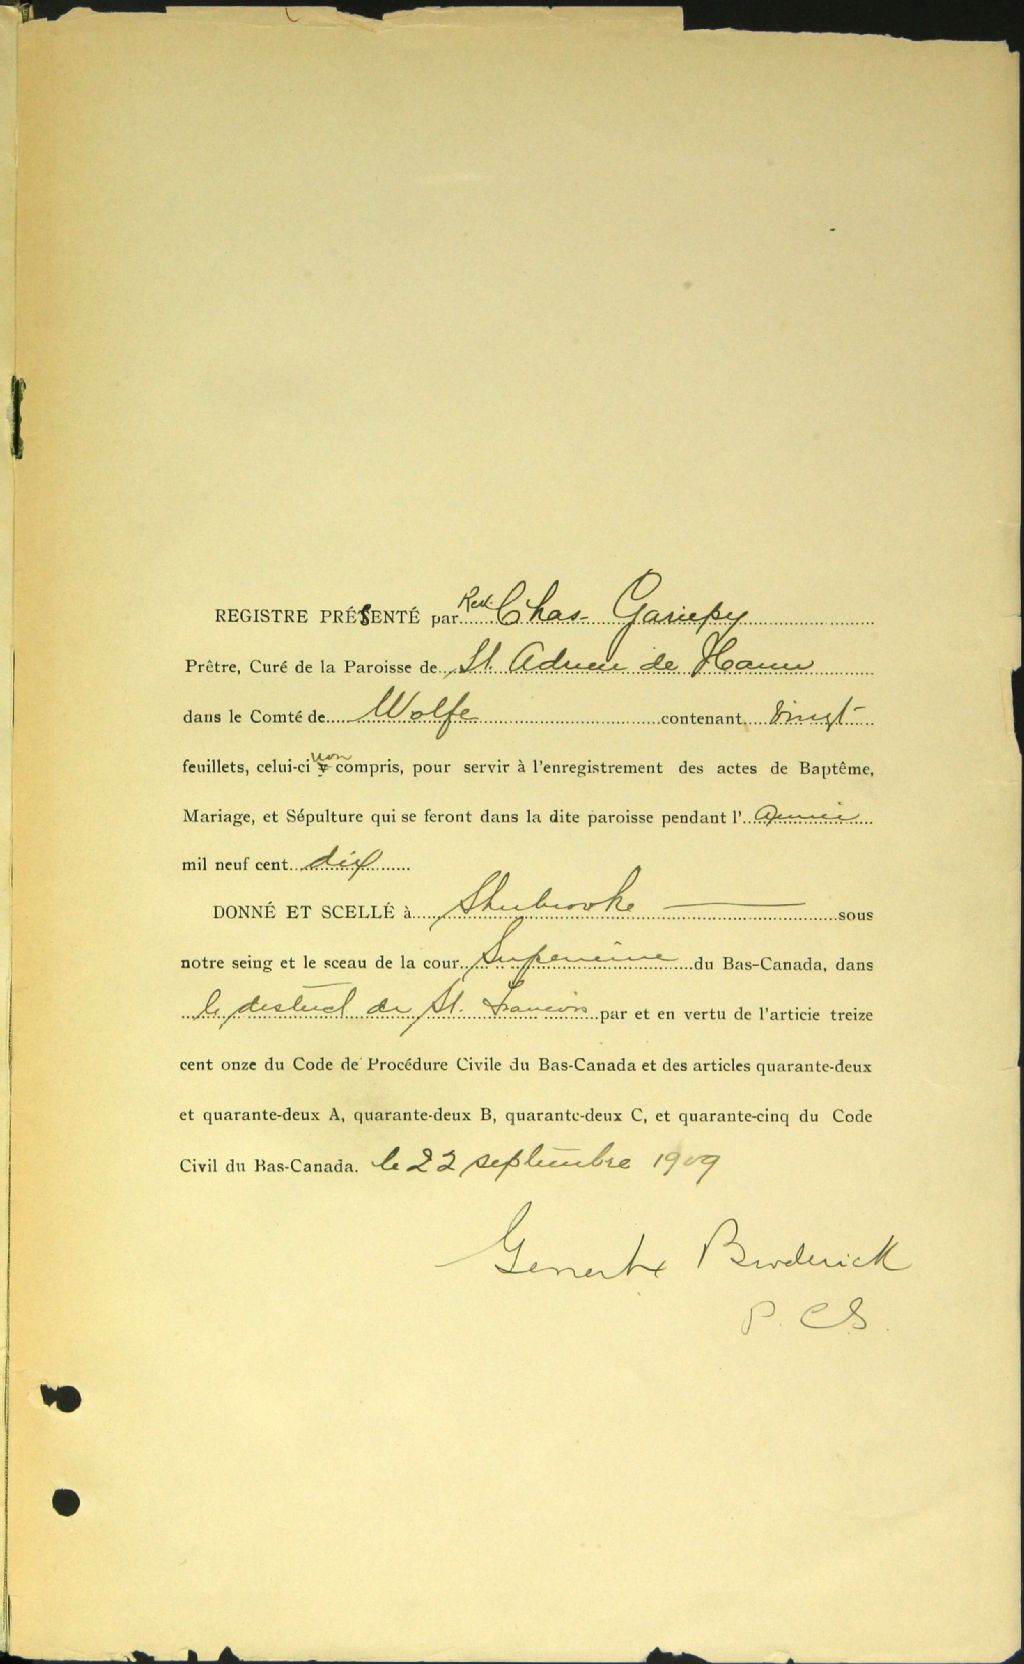 REGISTRE PRÉSENTÉ par Rev. Chas. Gariepy
Prêtre, Curé de la Paroisse de St. Adrien de Ham
dans le Comté de Wolfe contenant vingt
feuillets, celui-ci non compris, pour servir à l'enregistrement des actes de Baptême,
Mariage, et Sépulture qui se feront dans la dite paroisse pendant l'année
mil neuf cent dix
DONNÉ ET SCELLÉ à Sherbrooke sous
notre seing et le sceau de la cour Superieure du Bas-Canada, dans
le district de St. Francois par et en vertu de l'articie treize
cent onze du Code de Procédure Civile du Bas-Canada et des articles quarante-deux
et quarante-deux A, quarante-deux B, quarante-deux C, et quarante-cinq du Code
Civil du Bas-Canada. le 22 septembre 1909
Broderick
P. C S.